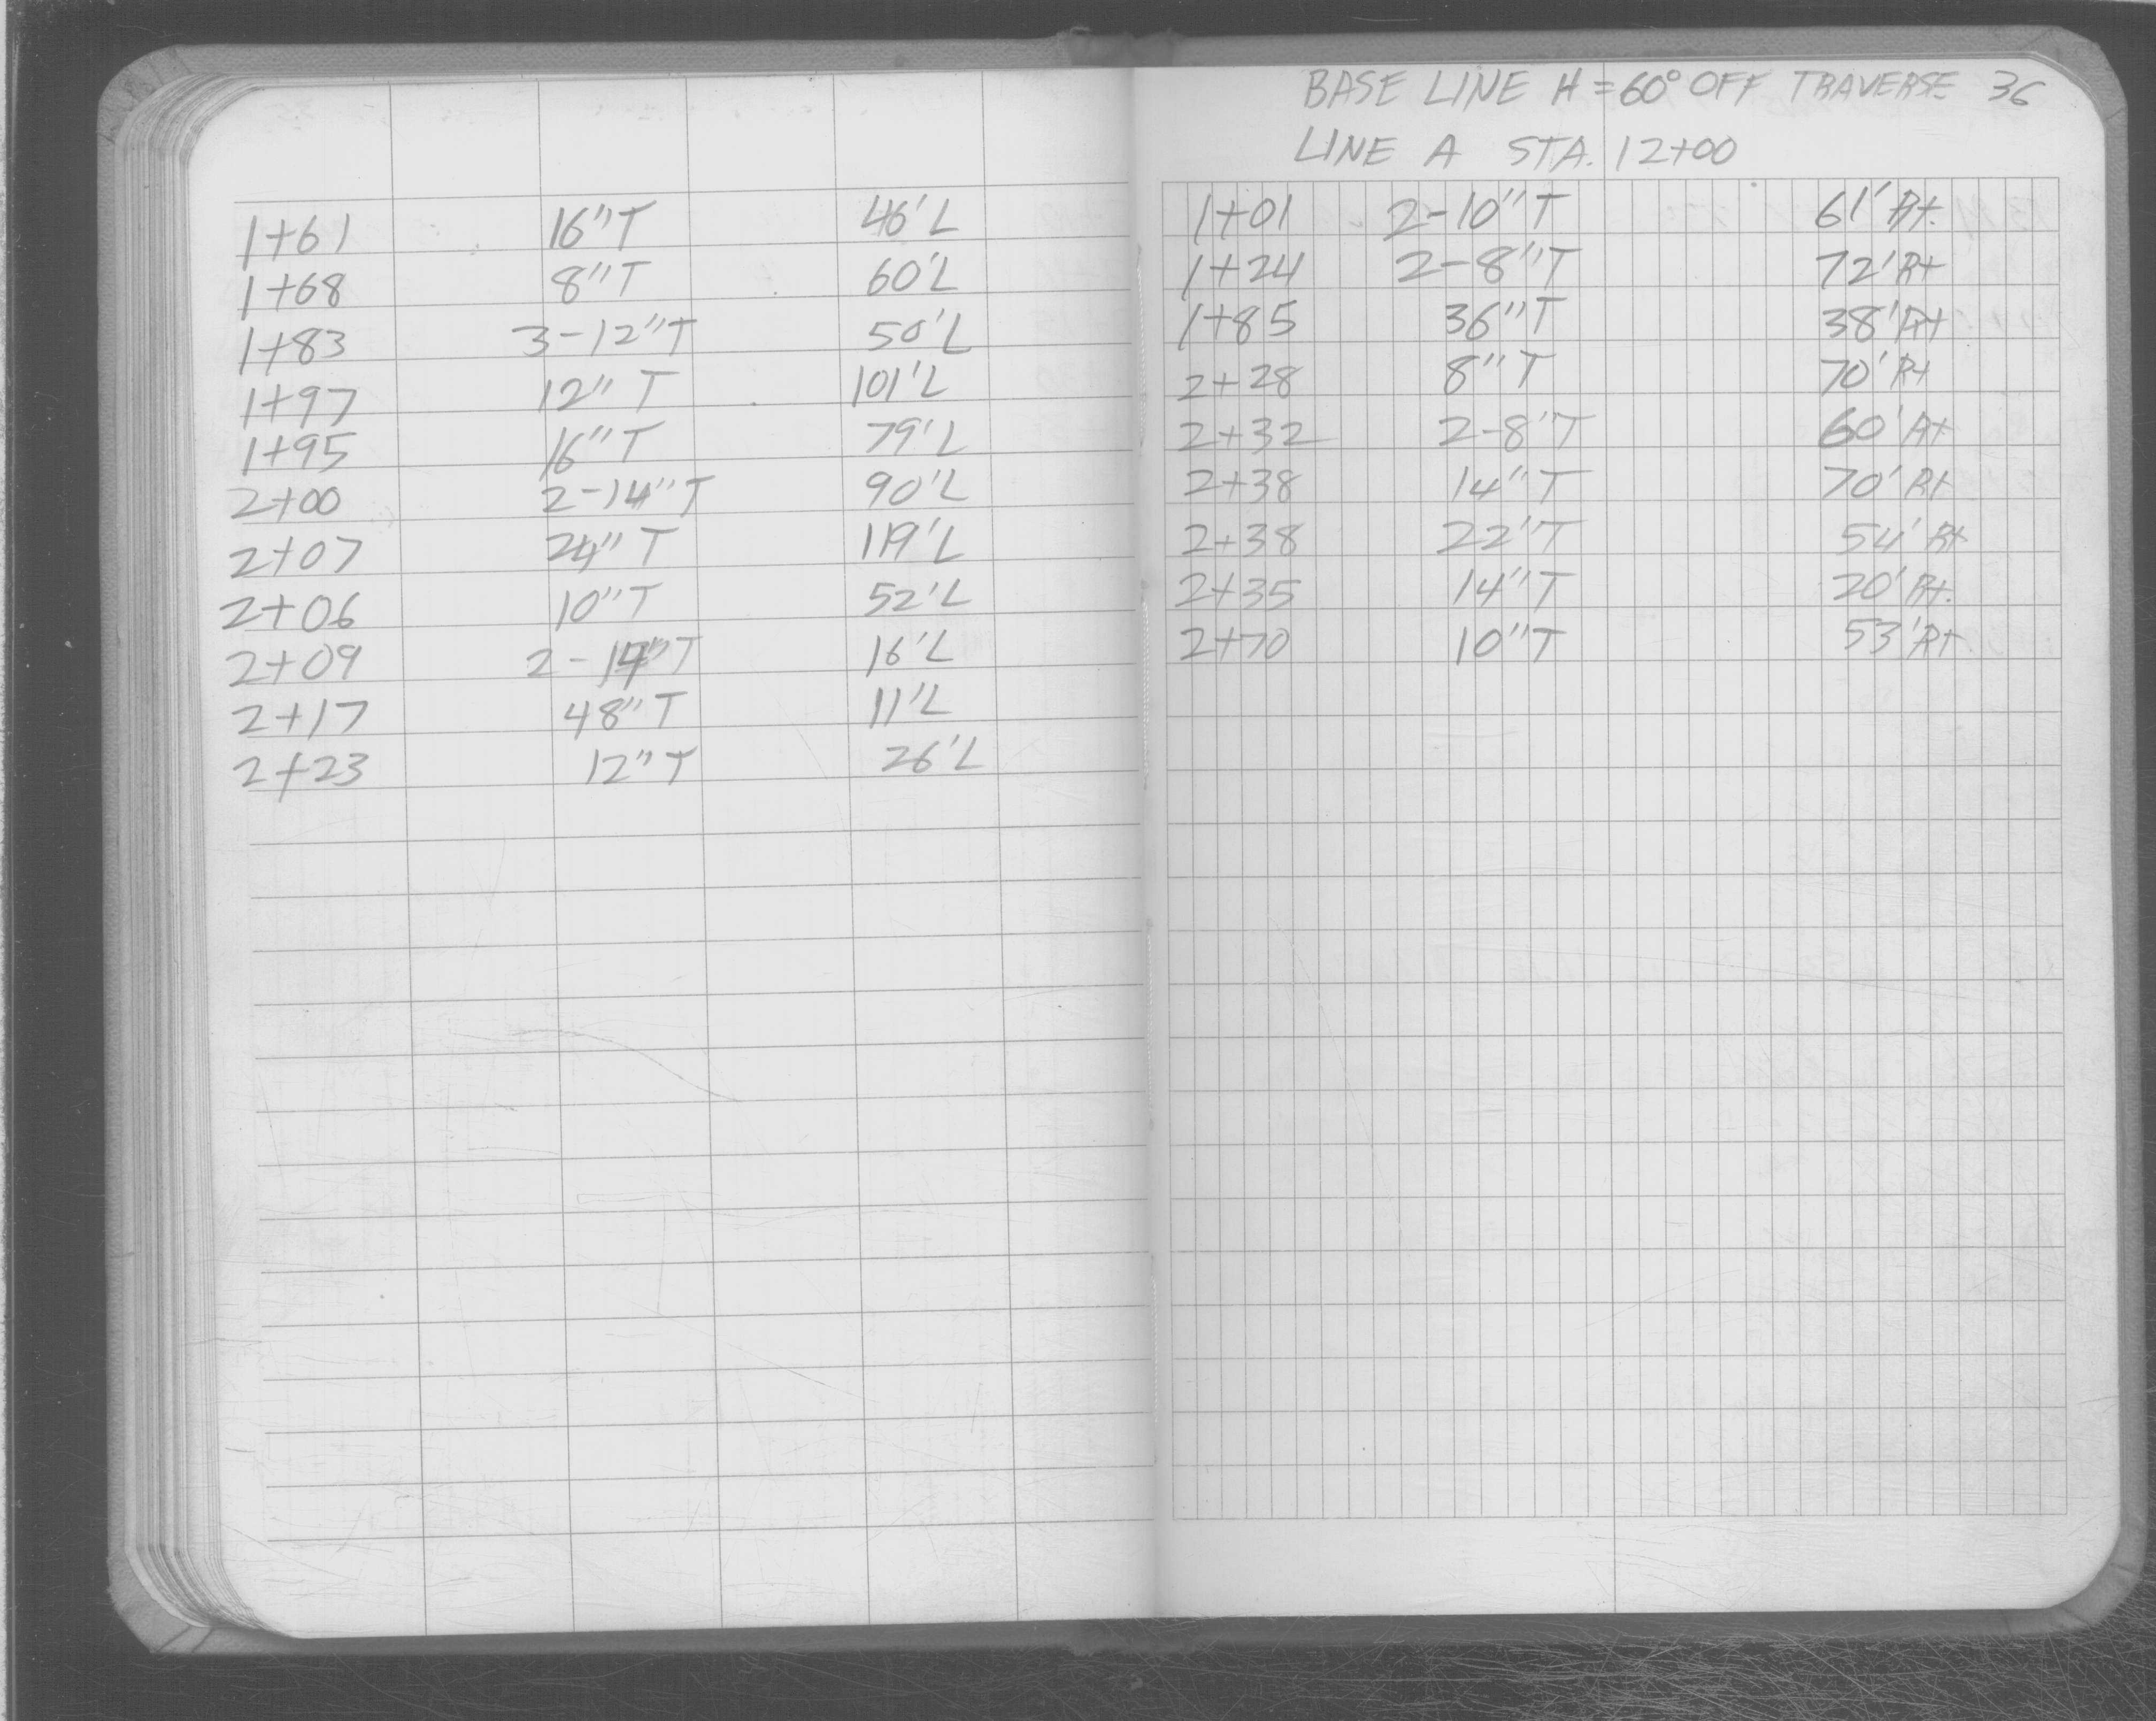 1+61 16"T 46'L
1+68 8"T 60'L
1+83 3-12"T 50'L
1+97 12"T 101'L
1+95 16"T 79'L
2+00 2-14"T 90'L
2+07 24"T 119'L
2+06 10"T 52'L
2+09 2- 16'L
2+17 48"T 11'L
2+23 12"T 26'L
BASE LINE H = 60° OFF TRAVERSE 36
LINE A STA. 12+00
1+01 2-10"T 61' Rt.
1+24 2-8"T 72' Rt
1+85 36"T 38' Rt
2+28 8"T 70' Rt
2+32 2-8'T 60' Rt
2+38 14"T 70' Rt
2+38 22'T 54' Rt
2+35 14"T 20' Rt.
2+70 10"T 53' Rt